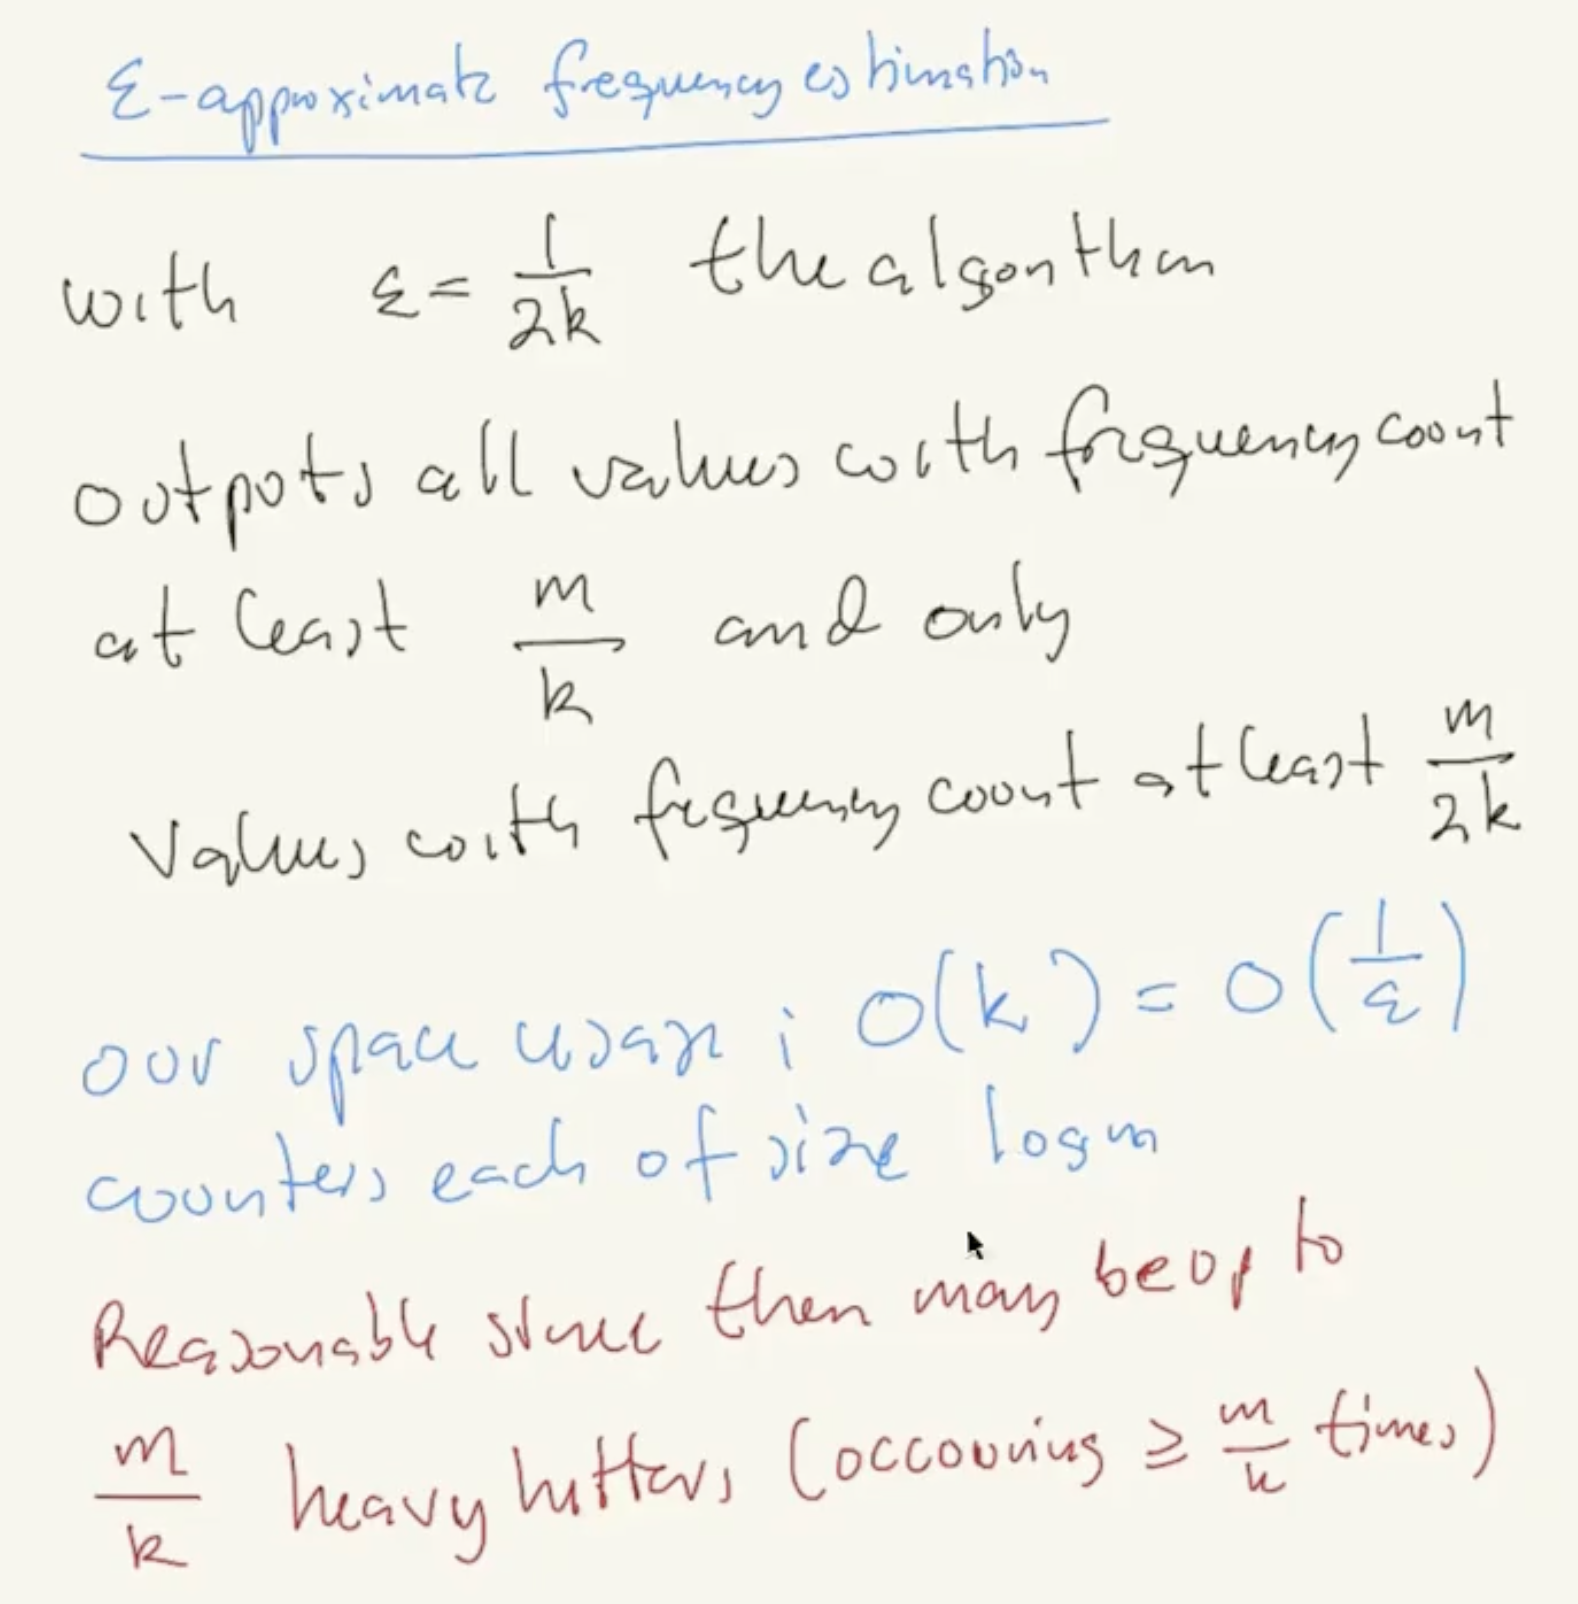 ε-approximate frequency estimation
with ε = 1/2k the algorithm
outputs all values with frequency count
at least m/k and only
values with frequency count at least m/2k
our space usage : O(k) = O(1/ε)
counters each of size log m
Reasonable since there may be up to
m/k heavy hitters (occouring ≥ m/k times)